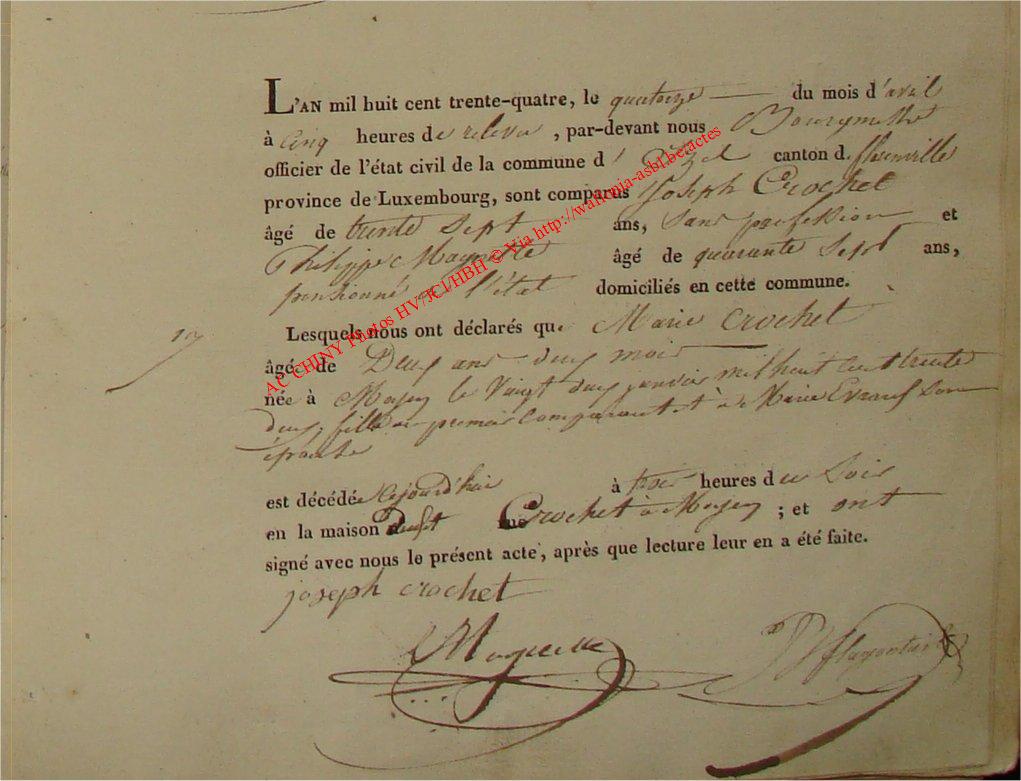 L'AN mil huit cent trente-quatre, le quatorze du mois d'avril
à cinq heures de relevée, par-devant nous Bourgmestre
officier de l'état civil de la commune d' Izel canton de florenville
province de Luxembourg, sont comparus Joseph Crochet
âgé de trente Sept ans, Sans profession et
Philippe Magnette âgé de quarante Sept ans,
pensionné de l'état domiciliés en cette commune.
Lesquels nous ont déclarés que Marie Crochet
âgée de Deux ans deux mois
née à Moyen le Vingt deux janvier mil huit cent trente
deux, fille du premier comparant et à Marie Evrard Son
épouse
est décédée aujourd'hui à trois heures du Soir
en la maison dudit Crochet à Moyen ; et ont
signé avec nous le présent acte, après que lecture leur en a été faite.
joseph crochet
Magnette
AC CHINY Photos HV/JCl/HBH © Via http://wallonia-asbl.be/actes